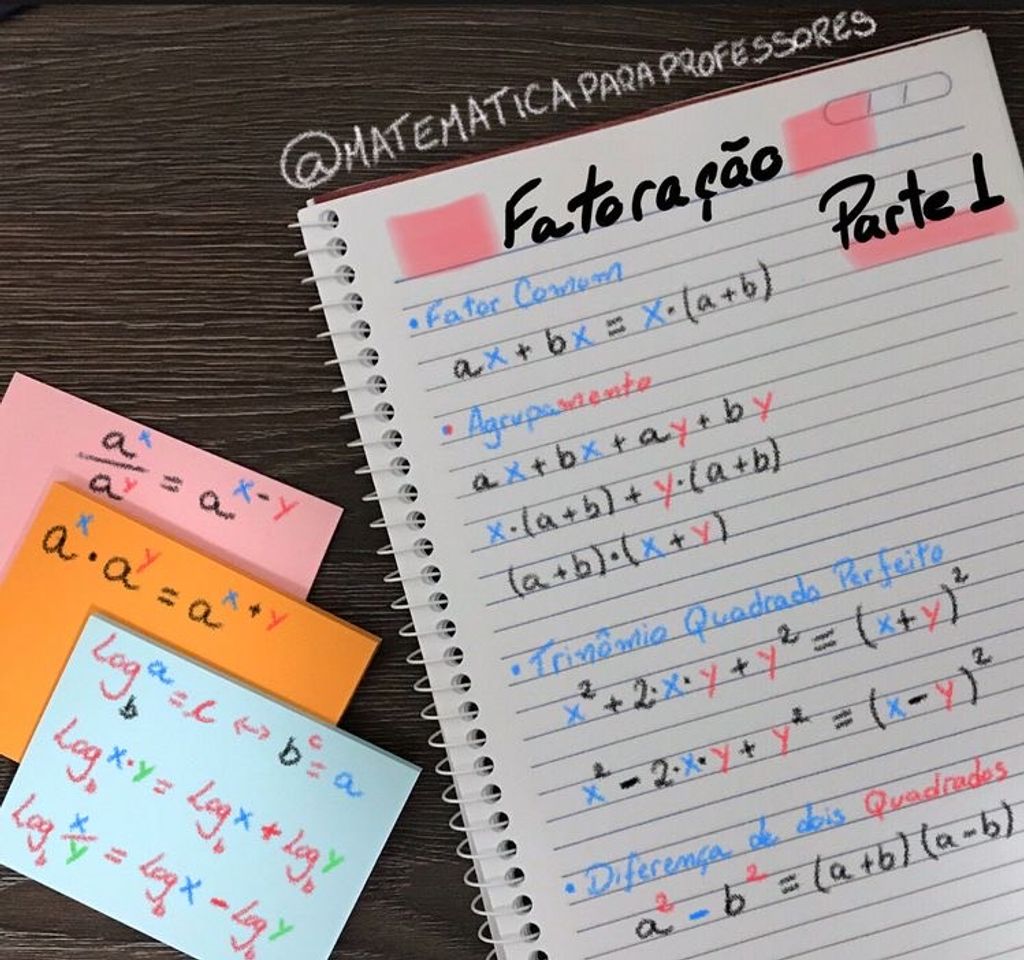 @MATEMATICAPARAPROFESSORES
Fatoração
Parte 1
• Fator Comum
ax + bx = x·(a+b)
• Agrupamento
ax + bx + ay + by
x·(a+b) + y·(a+b)
(a+b)·(x+y)
• Trinômio Quadrado Perfeito
x² + 2·x·y + y² = (x+y)²
x² - 2·x·y + y² = (x-y)²
• Diferença de dois Quadrados
a² - b² = (a+b)(a-b)
aˣ/aʸ = aˣ⁻ʸ
aˣ · aʸ = aˣ⁺ʸ
Log_b a = c ↔ bᶜ = a
Log_b x·y = Log_b x + Log_b y
Log_b x/y = Log_b x - Log_b y